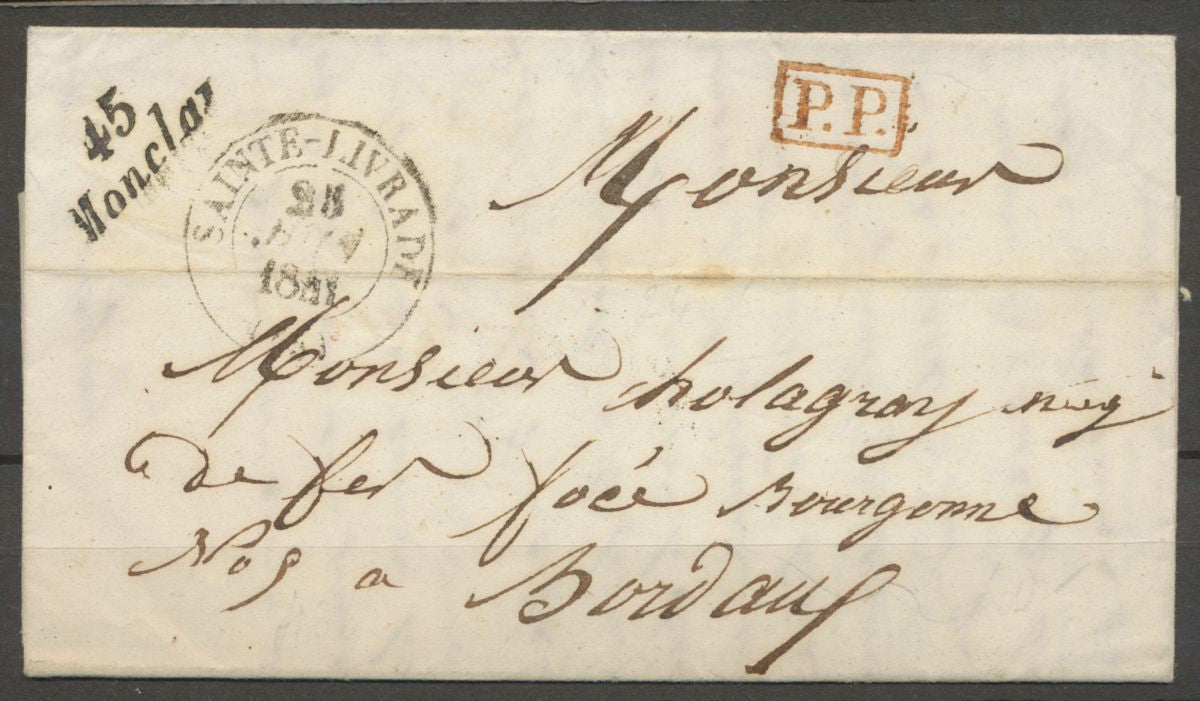 45
Monclar
SAINTE-LIVRADE
28
1841
P.P.
Monsieur
Monsieur holagray nég
de fer focé Bourgonne
No 9 a Bordauf